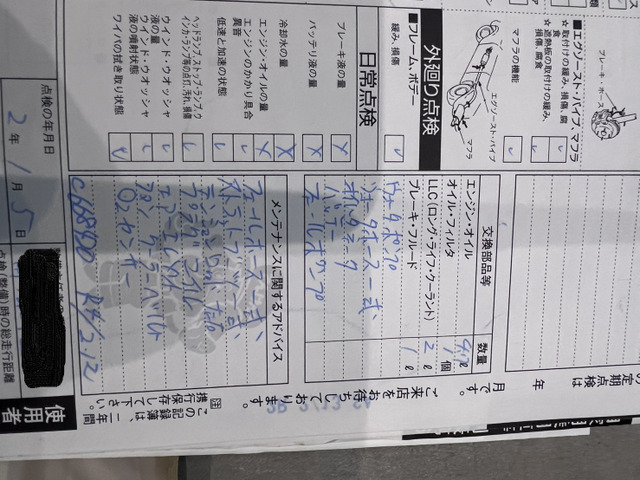 ■エグゾースト・パイプ、マフラ
☆取付けの緩み、損傷、腐食
☆遮熱板の取付けの緩み、損傷、腐食
マフラの機能
ブレーキ・ホース
エグゾースト・パイプ
マフラ
外廻り点検
■フレーム、ボデー
緩み、損傷
日常点検
ブレーキ液の量
バッテリ液の量
冷却水の量
エンジン・オイルの量
エンジンのかかり具合、異音
低速と加速の状態
ヘッドランプ、ストップ・ランプ、ウインカ・ランプ等の点灯、汚れ、損傷
ウインド・ウオッシャ液の量
ウインド・ウオッシャ液の噴射状態
ワイパの拭き取り状態
交換部品等
数量
エンジン・オイル
オイル・フィルタ
1個
LLC(ロング・ライフ・クーラント)
2ℓ
ブレーキ・フルード
1ℓ
ウォータポンプ
ウォータホース一式
バッテリー
フューエルポンプ
メンテナンスに関するアドバイス
フューエルホース一式、
ファンクーラーベルト
O2センサー
点検の年月日
2年1月5日
点検(整備)時の総走行距離
使用者
の定期点検は
年
月です。
ご来店をお待ちしております。
この記録簿は二年間
携行保存して下さい。